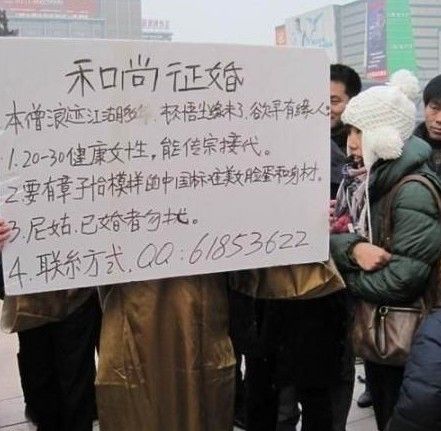 和尚征婚
本僧浪迹江湖 未了,欲寻有缘人。
1.20-30健康女性,能传宗接代。
2.要有章子怡模样的中国标准美女脸蛋和身材。
3.尼姑,已婚者勿扰。
4.联系方式.QQ:61853622